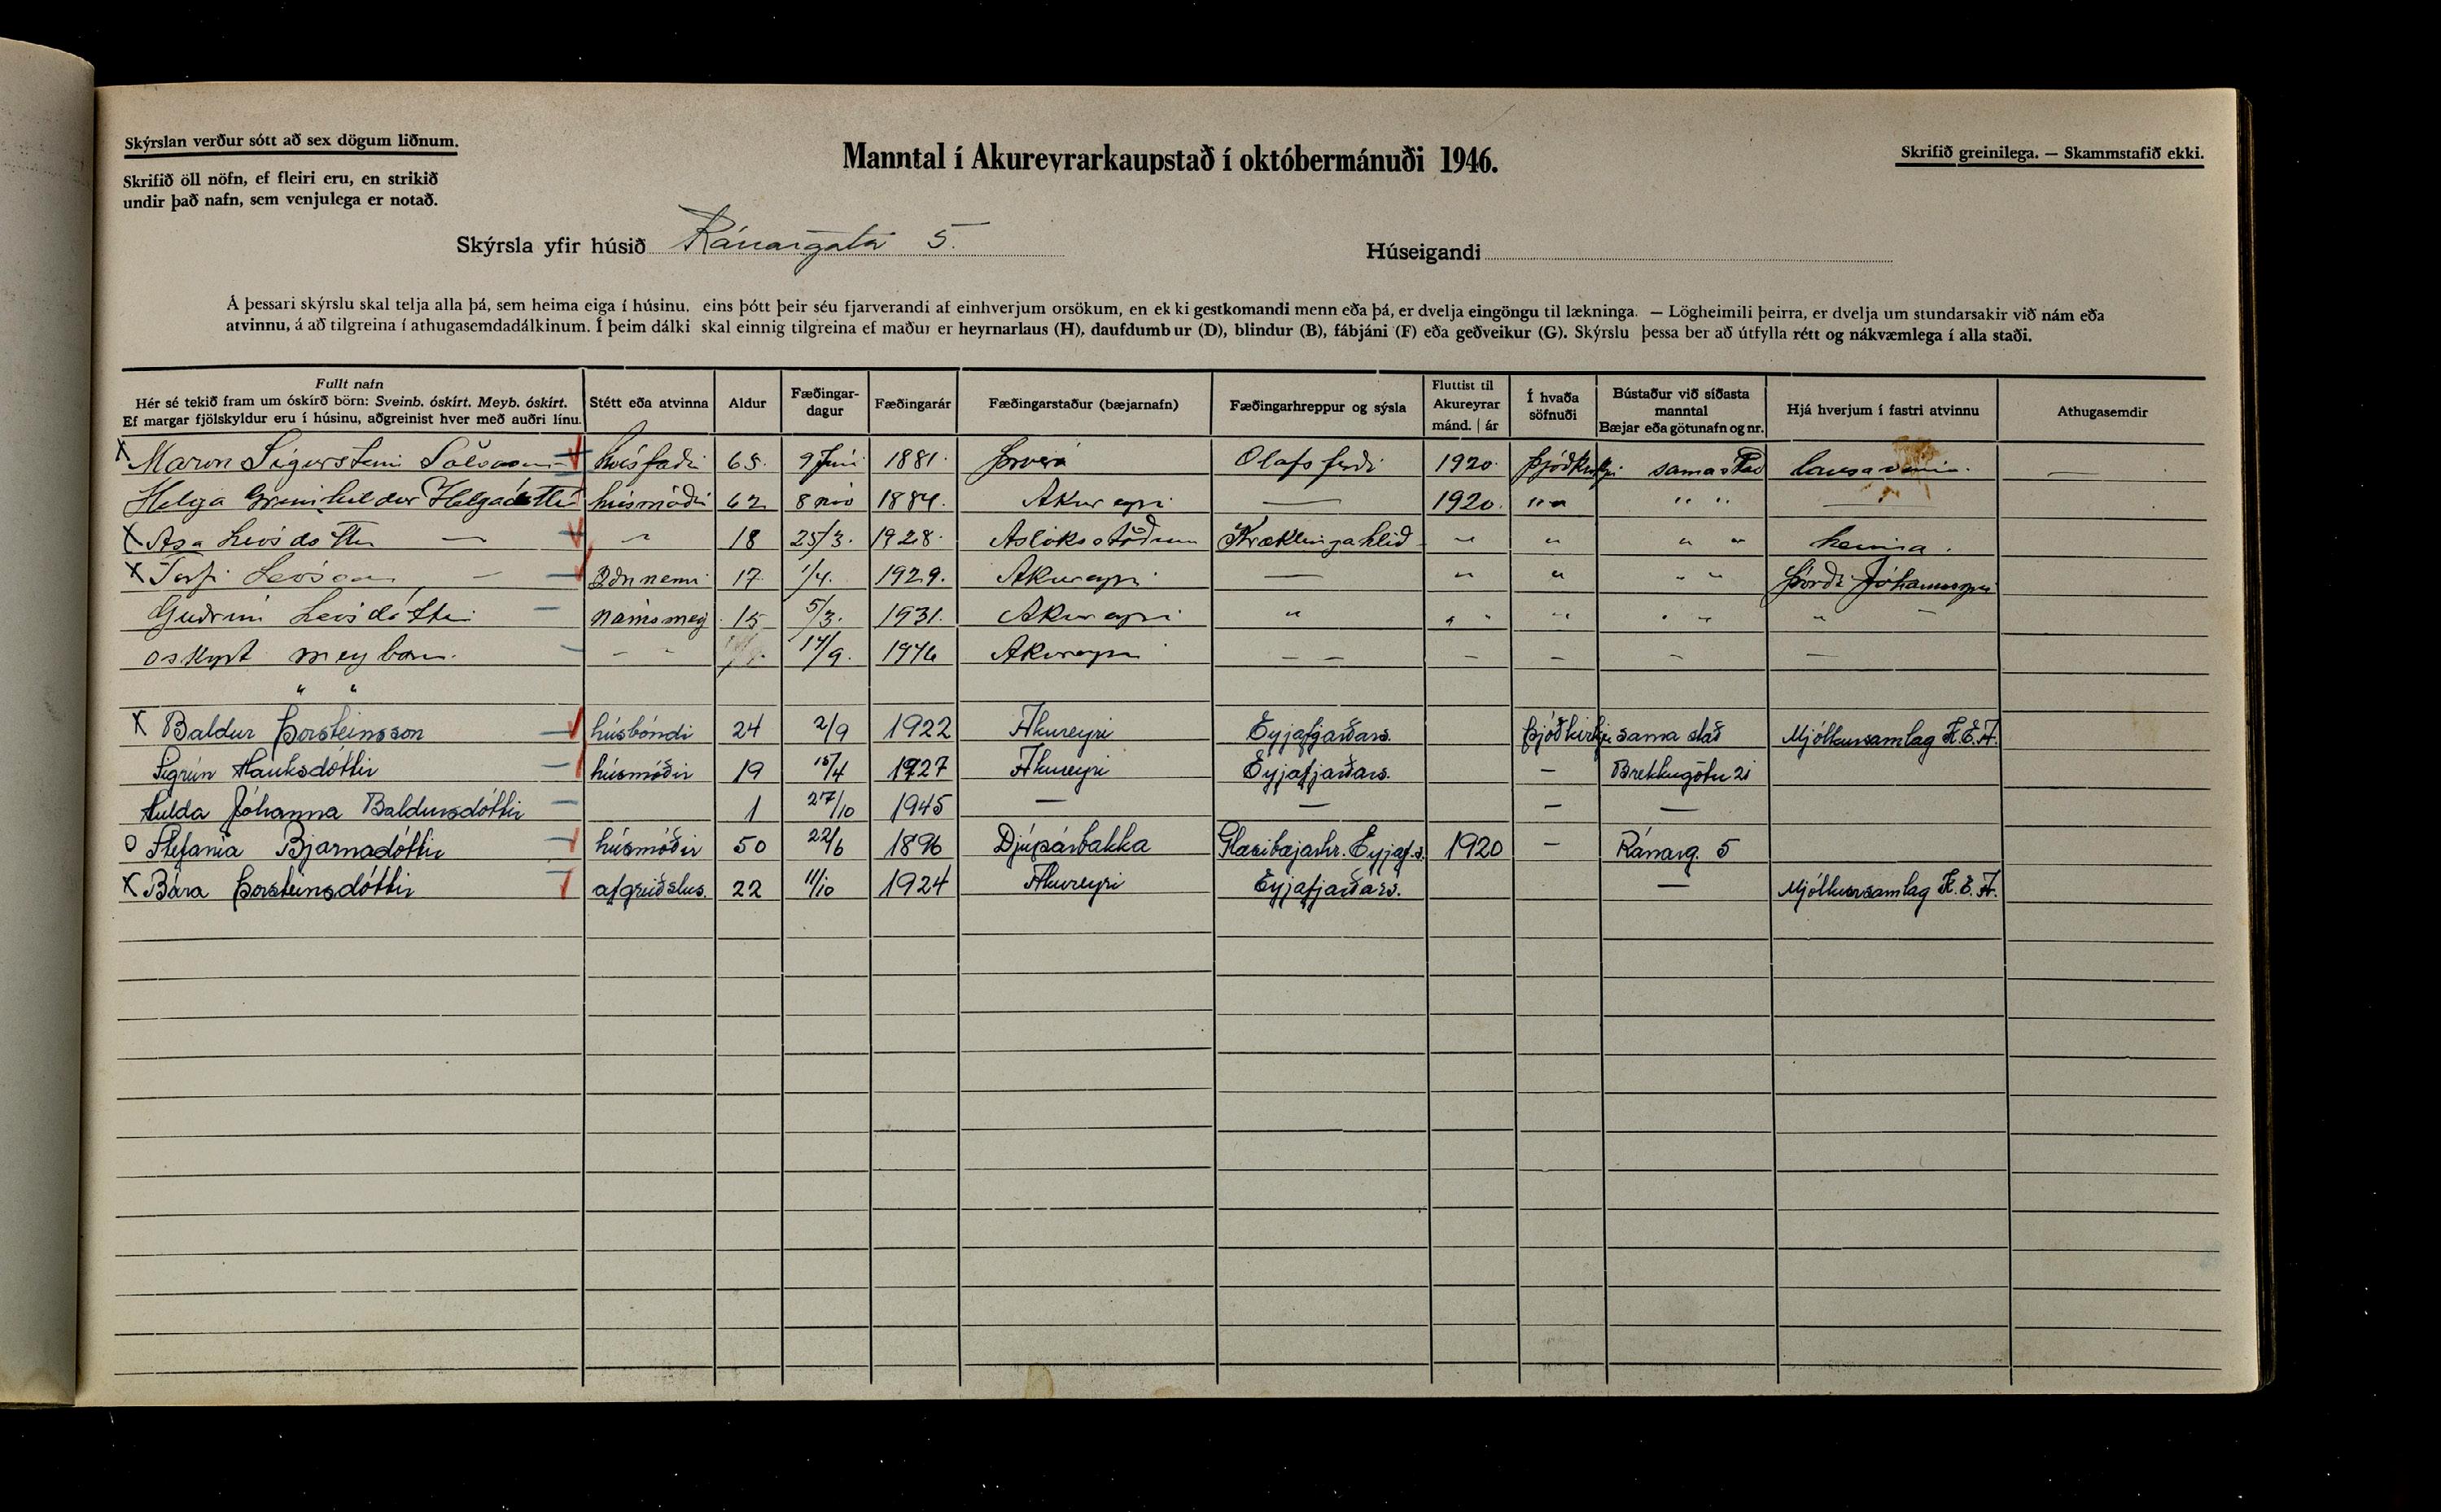 Skýrslan verður sótt að sex dögum liðnum.
Skrifið öll nöfn, ef fleiri eru, en strikið
undir það nafn, sem venjulega er notað.
Manntal í Akureyrarkaupstað í októbermánuði 1946.
Skrifið greinilega. — Skammstafið ekki.
Skýrsla yfir húsið Ránargata 5.
Húseigandi
Á þessari skýrslu skal telja alla þá, sem heima eiga í húsinu, eins þótt þeir séu fjarverandi af einhverjum orsökum, en ekki gestkomandi menn eða þá, er dvelja eingöngu til lækninga. — Lögheimili þeirra, er dvelja um stundarsakir við nám eða
atvinnu, á að tilgreina í athugasemdadálkinum. Í þeim dálki skal einnig tilgreina ef maður er heyrnarlaus (H), daufdumbur (D), blindur (B), fábjáni (F) eða geðveikur (G). Skýrslu þessa ber að útfylla rétt og nákvæmlega í alla staði.
Fullt nafn
Hér sé tekið fram um óskírð börn: Sveinb. óskírt. Meyb. óskírt.
Ef margar fjölskyldur eru í húsinu, aðgreinist hver með auðri línu.
Stétt eða atvinna
Aldur
Fæðingar-
dagur
Fæðingarár
Fæðingarstaður (bæjarnafn)
Fæðingarhreppur og sýsla
Fluttist til
Akureyrar
mánd. | ár
Í hvaða
söfnuði
Bústaður við síðasta
manntal
Bæjar eða götunafn og nr.
Hjá hverjum í fastri atvinnu
Athugasemdir
X Maron Sigursteini húsfaðir 65. 9 Júni 1881. Þverá Olafsfirði 1920. Þjóðkirkju sama stað —
Helga Helgadóttir húsmóðir 62 8 nóv 1884. Akureyri — 1920. " " " " —
X Asa Leósdóttir — " 18 25/3. 1928. Asláksstöðum Kræklingahlíð " " " " heima.
X Torfi Leósson — Iðnnemi 17. 1/4. 1929. Akureyri — " " " " Þórði Jóhannssyni
Guðrún Leósdóttir námsmey 15 5/3. 1931. Akureyri " " " " " " " —
oskýrt meybarn. — — 17/9. 1946 Akureyri — — — — — —
" "
X Baldur Þorsteinsson húsbóndi 24 2/9 1922 Akureyri Eyjafjarðars. Þjóðkirkju sama stað Mjólkursamlag K.E.A.
Sigrún Hauksdóttir húsmóðir 19 15/4 1927 Akureyri Eyjafjarðars. — Brekkugötu 21
Hulda Jóhanna Baldursdóttir 1 27/10 1945 — — — —
O Stefania Bjarnadóttir húsmóðir 50 22/6 1896 Djúpárbakka Glæsibæjarhr. Eyjaf.s. 1920 — Ránarg. 5
X Bára Þorsteinsdóttir afgreiðslus. 22 11/10 1924 Akureyri Eyjafjarðars. — Mjólkursamlag K.E.A.